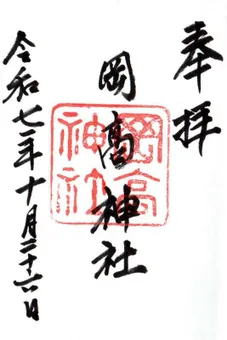 奉拝
岡高神社
岡高
神社
令和七年十月二十六日